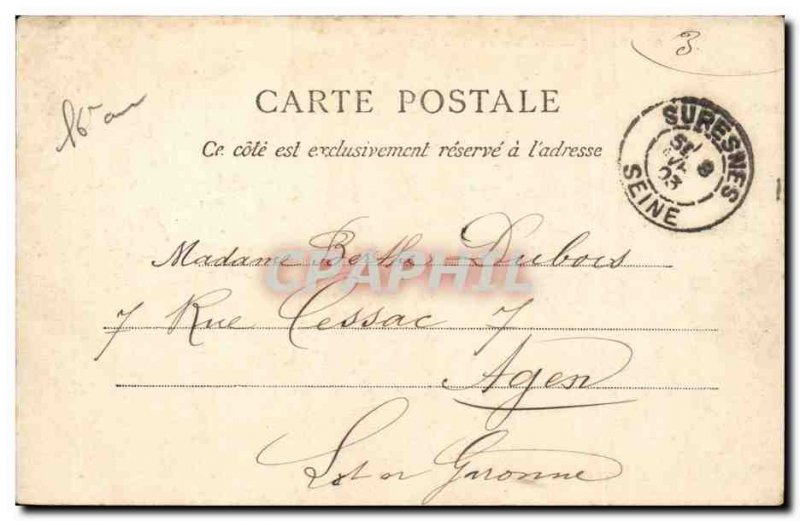 3
CARTE POSTALE
Ce côté est exclusivement réservé à l'adresse
SURESNES
03
SEINE
Madame Berthe Dubois
CPAPHIL
7 Rue Cessac 7
Agen
Lot et Garonne